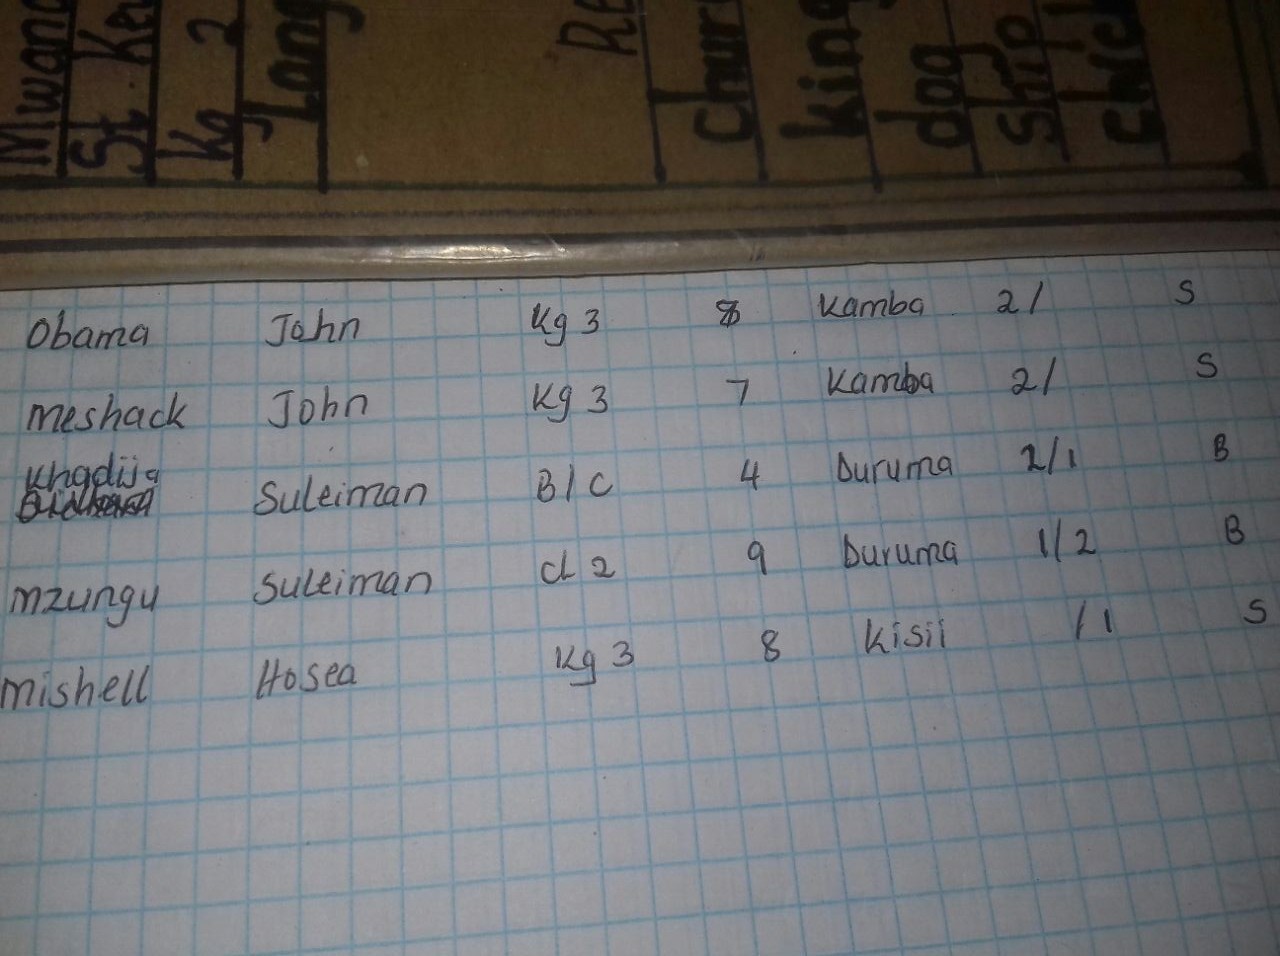 Mwan
St. Ke
Kg 2
Lang
Re
Chur
king
dog
Ship
chic
Obama John Kg 3 8 Kamba 2/ S
meshack John Kg 3 7 Kamba 2/ S
Khadija Suleiman B/C 4 Duruma 2/1 B
mzungu Suleiman cl 2 9 Duruma 1/2 B
mishell Hosea Kg 3 8 Kisii /1 S